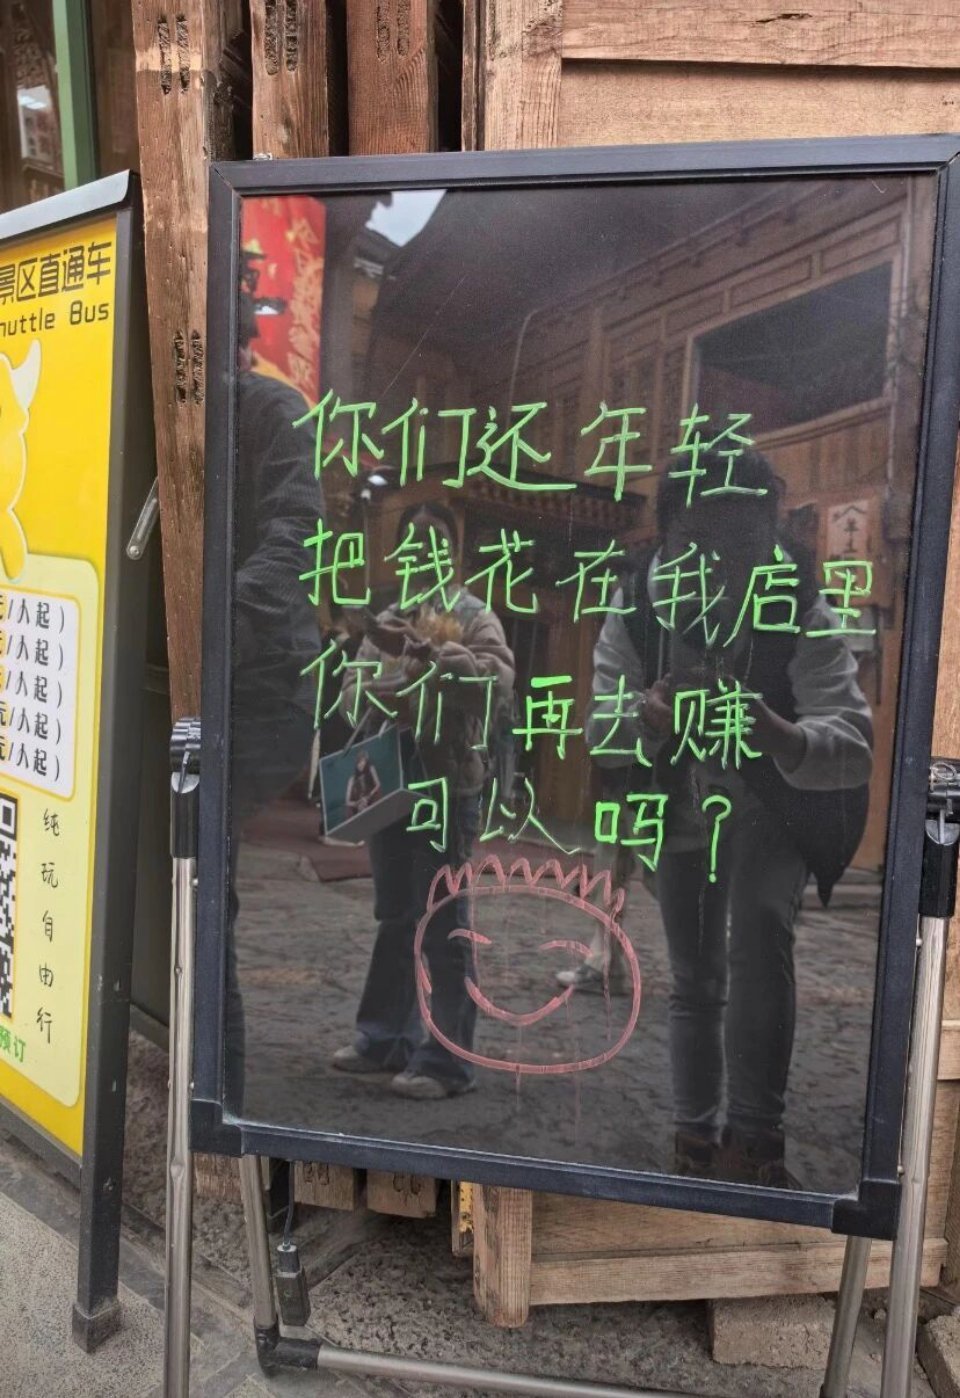 景区直通车
huttle Bus
元/人起）
元/人起）
元/人起）
元/人起）
元/人起）
纯玩自由行
预订
你们还年轻
把钱花在我店里
你们再去赚
可以吗？